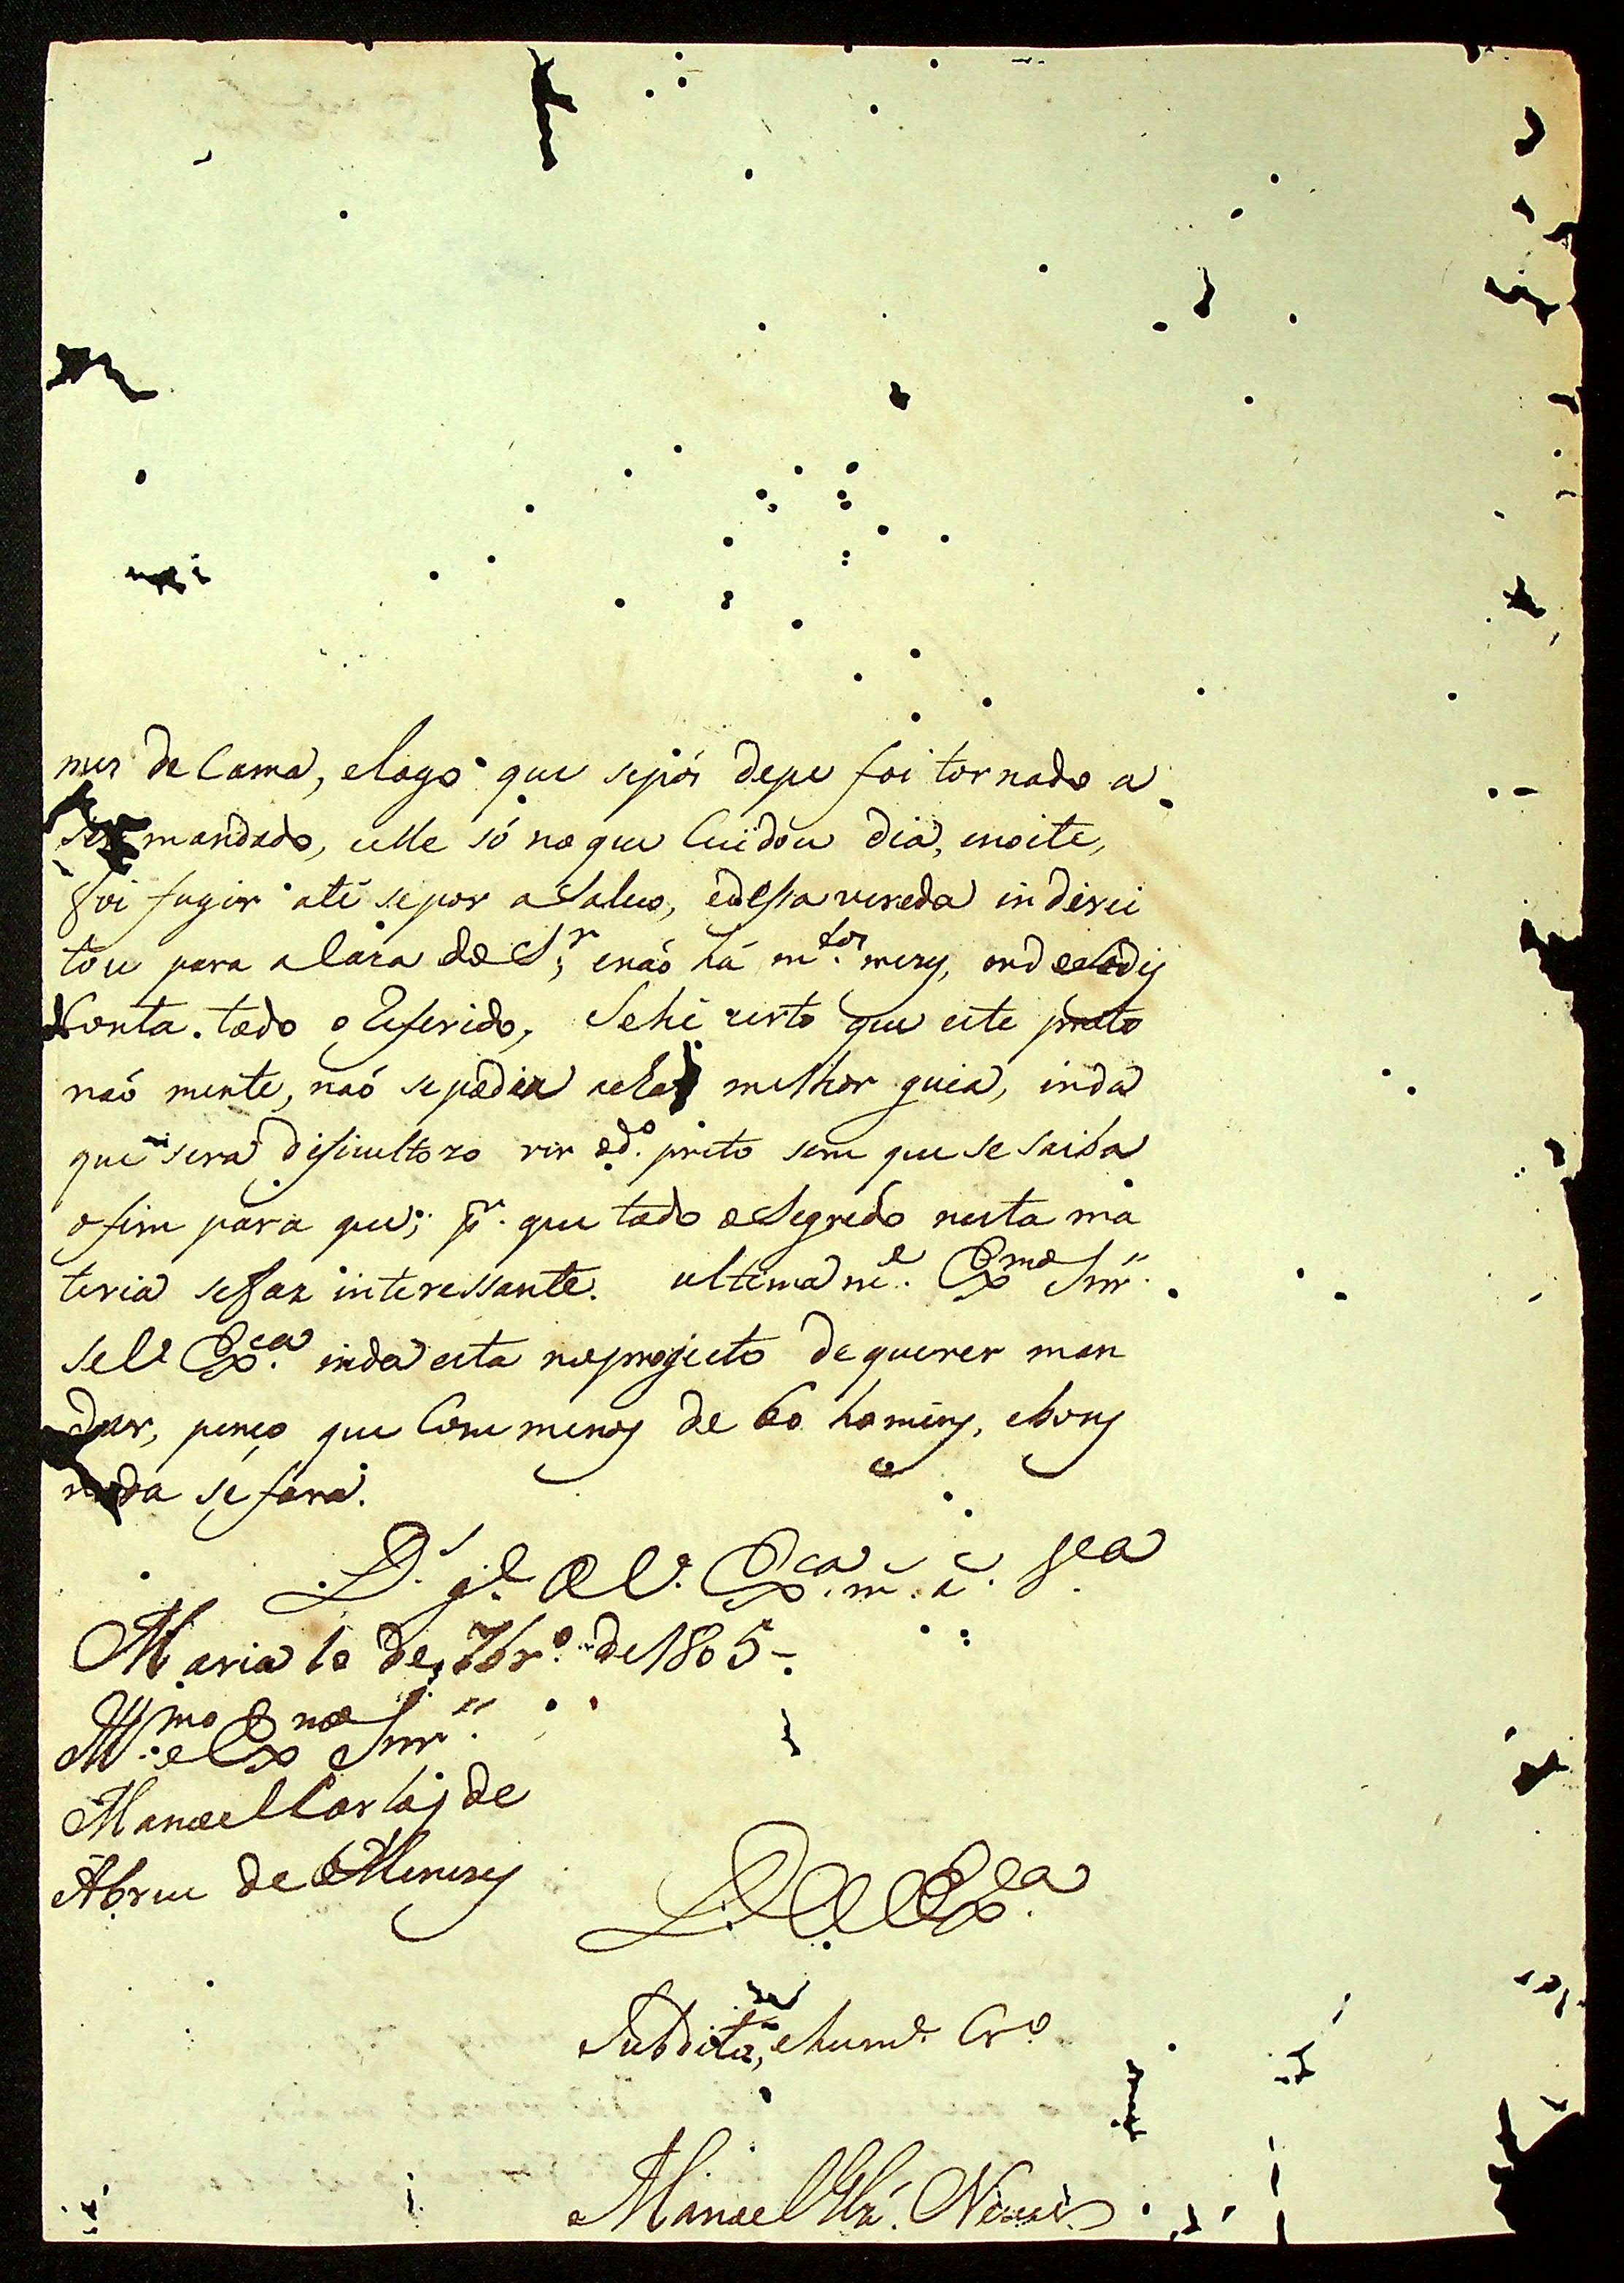 mes de Cama, elogo que sepós depe foi tornado a
ser mandado, elle só no que Cuidou dia, enoite,
foi fugir até sepor aSalvo, edessa vereda indirei
tou para aCaza do Sr; enáo há m.tos mezes, onde
Conta todo o Referido, Sehé certo que este preto
naó mente, naó sepodia achar melhor guia, inda
que será dificultozo vir od.o preto sem que se saiba
ofim para que; p.r que todo oSegredo nesta ma
teria sefaz interessante. ultimam.e Ex.mo Snr.
seV. Ex.ca inda esta noprojecto dequerer man
dar, penço que Com menos de 60 homens, ebons
nada se fará.
D.s g.e a V. Ex.ca m. a.
Maria 10 de 7br.o de 1805
Ill.mo e Ex.mo Snr.
Manoel Carlos de
Abreu de Menezes
De V. Ex.ca
Subdito, ehum.e Cr.o
Manoel